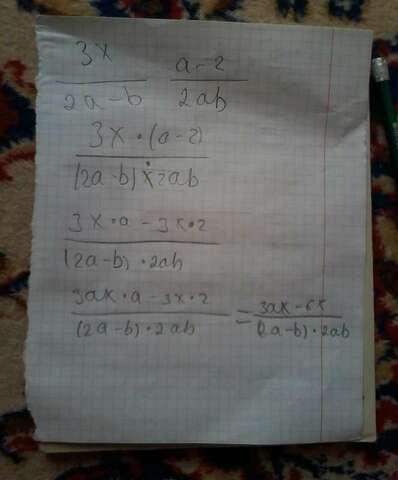 3x/(2a-b)   (a-2)/(2ab)
3x·(a-2)/((2a-b)×2ab)
(3x·a-3x·2)/((2a-b)·2ab)
(3ax·a-3x·2)/((2a-b)·2ab) = (3ax-6x)/((2a-b)·2ab)